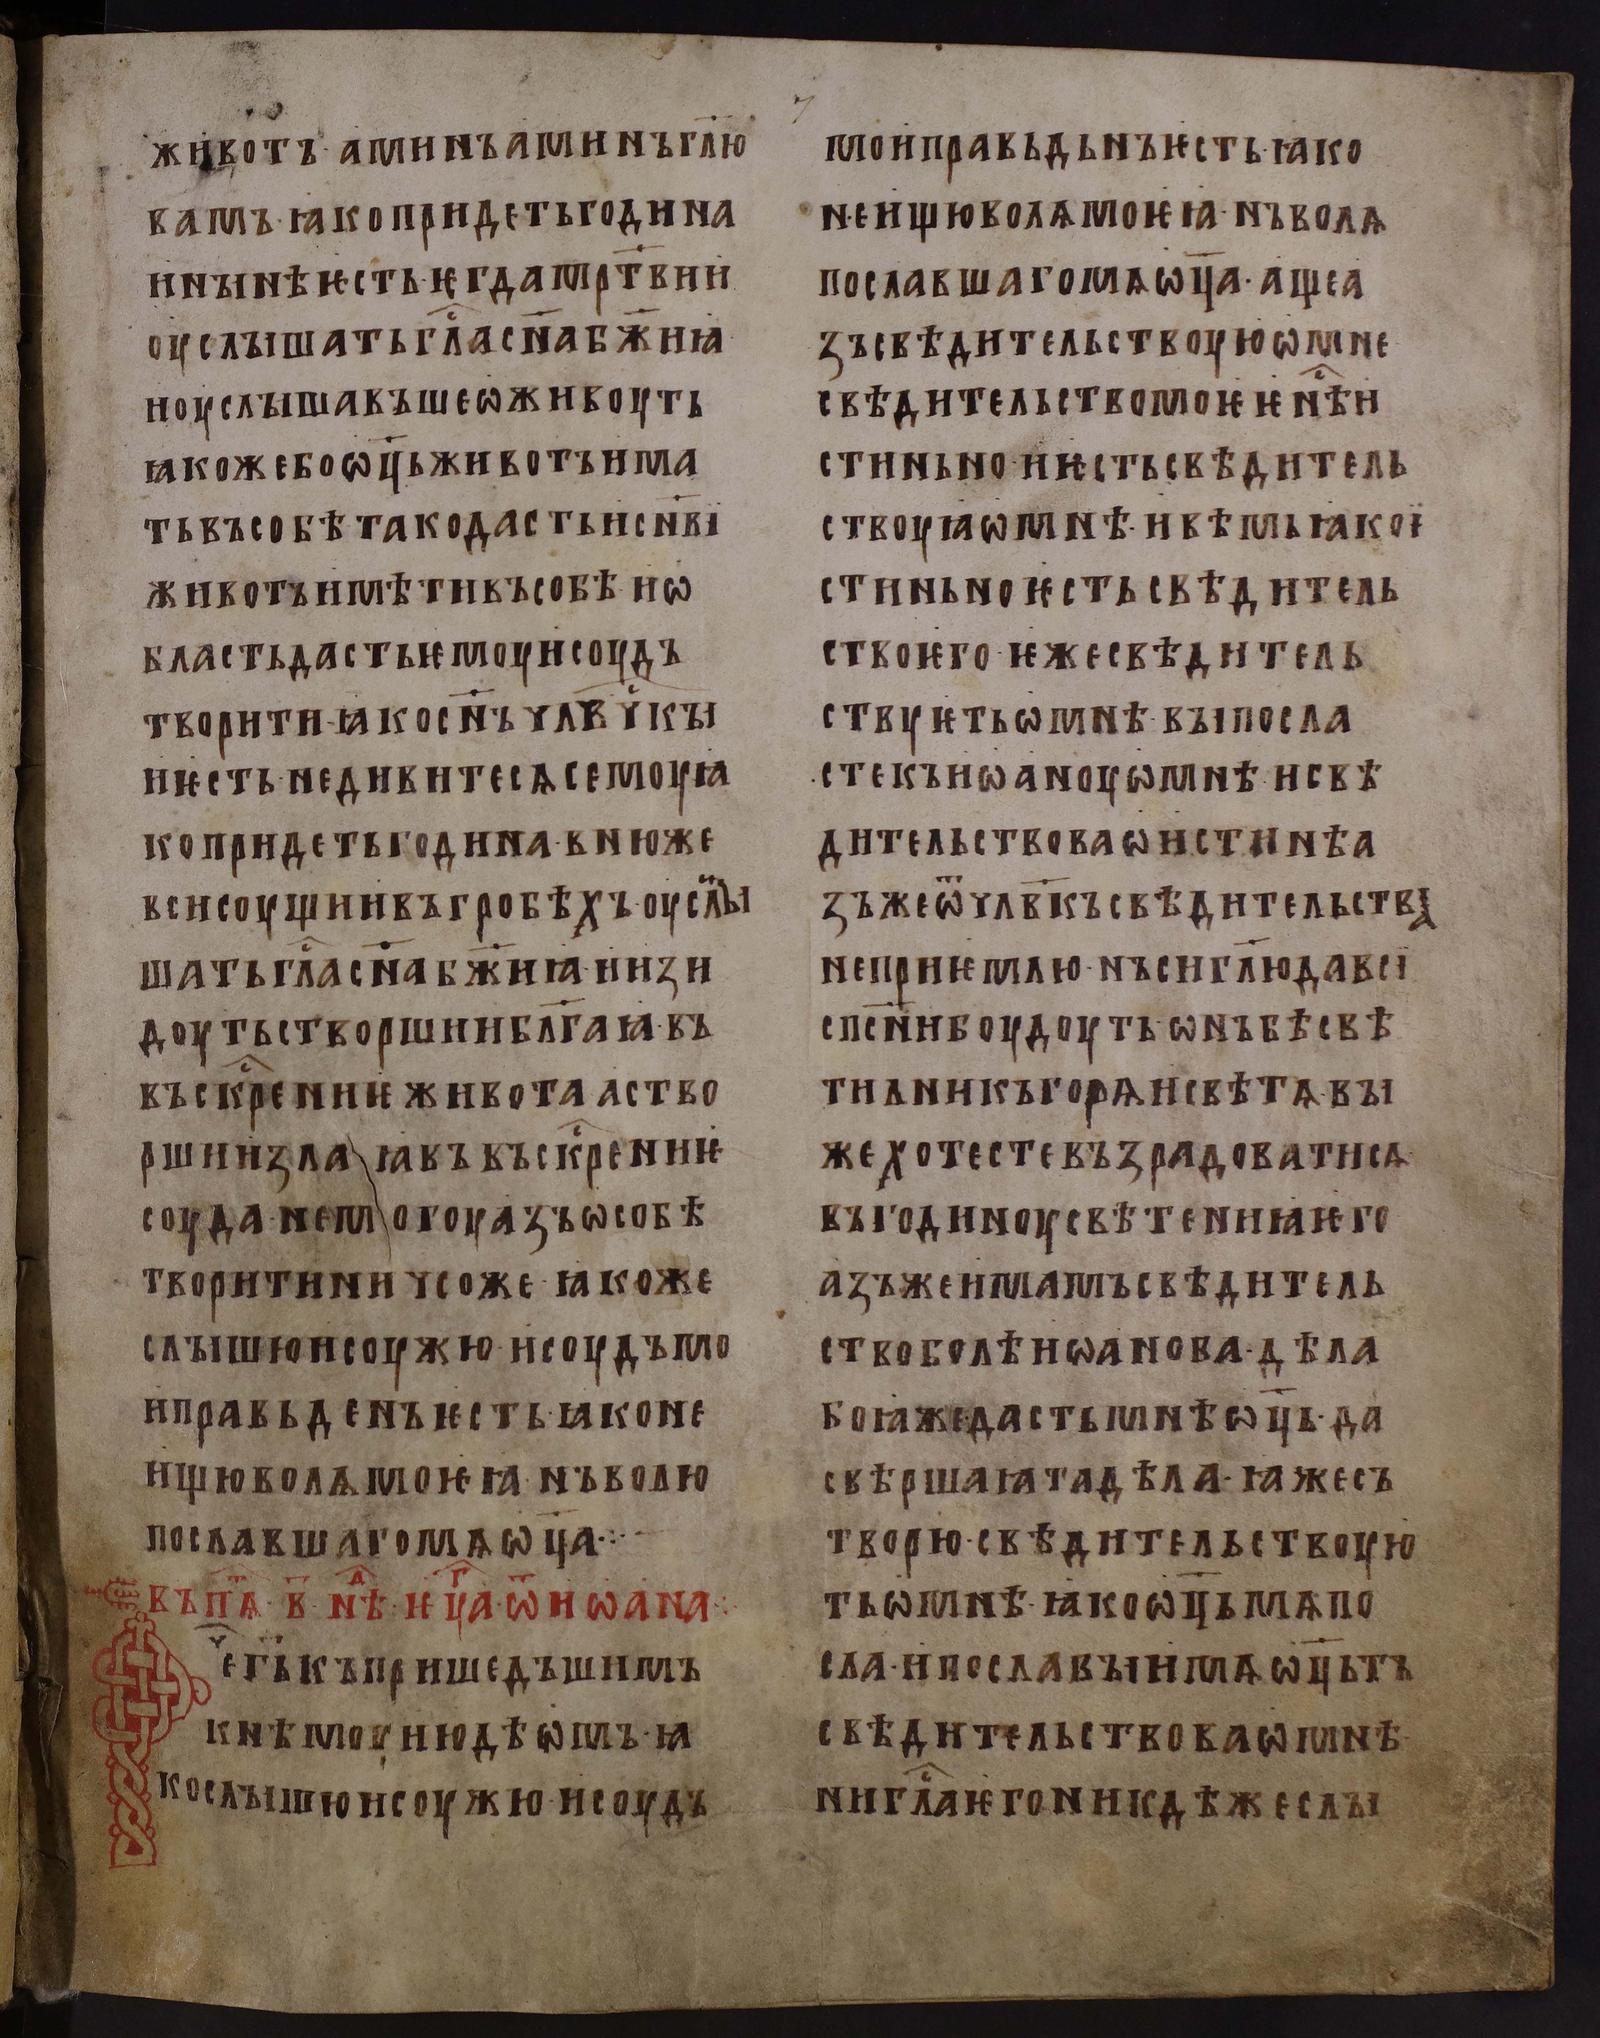 животъ· аминъ аминъ гл҃ю
вамъ· ꙗко придеть година
и нынѣ ѥсть· ѥгда мрт҃вии
оуслышать гла҇с сн҃а бж҃иꙗ
и оуслышавъше ѡживоуть
ꙗкоже бо ѡц҃ь животъ има
ть въ собѣ тако дасть и сн҃ві
животъ имѣти въ собѣ· и ѡ
бласть дасть ѥмоу и соудъ
творити· ꙗко сн҃ъ члв҃чкы
и ѥсть· не дивитесѧ семоу ꙗ
ко придеть година· в нюже
вси соущии въ гробѣхъ оуслы
шать гла҇с сн҃а бж҃иꙗ· и изи
доуть створшии бл҃гаꙗ· въ
въскр҇ениѥ живота а ство
ршии злаꙗ въ въскр҇ениѥ
соуда· не могоу азъ ѡ собѣ
творити ничсоже· ꙗкоже
слышю и соужю· и соудъ мо
и правьденъ ѥсть· ꙗко не
ищю волѧ моѥꙗ· нъ волю
пославшаго мѧ ѡц҃а·:·
въ пѧ҇· в҃· нѣ҇д· ѥу҇га· ѿ иѡана·:
Рече гь҃ къ пришедъшимъ
к нѣмоу июдѣѡмъ· ꙗ
ко слышю и соужю· и соудъ
мои правьдьнъ ѥсть· ꙗко
не ищю волѧ моѥꙗ· нъ волѧ
пославшаго мѧ ѡц҃а· аще а
зъ свѣдительствоую ѡ мне
свѣдительство моѥ ѥ нѣ҇ и
стиньно· и ѥсть свѣдитель
ствоуꙗ ѡ мнѣ· и вѣмь ꙗко і
стиньно ѥсть свѣдитель
ство ѥго· ѥже свѣдитель
ствуѥть ѡ мнѣ· вы посла
сте къ иѡаноу ѡ мнѣ· и свѣ
дительствова ѡ истинѣ а
зъ же ѿ члв҃къ свѣдительствꙗ
не приѥмлю· нъ си гл҃ю да всі
спс҃ни боудоуть· ѡнъ бѣ свѣ
тилникъ горѧ и свѣтѧ· вы
же хотесте въздрадоватисѧ
въ годиноу свѣтениꙗ ѥго
азъ же имамъ свѣдитель
ство болѣ иѡанова· дѣла
бо ꙗже дасть мнѣ ѡц҃ь· да
свѣршаю та дѣла· ꙗже съ
творю· свѣдительствоую
ть ѡ мнѣ· ꙗко ѡц҃ь мѧ по
сла· и пославыи мѧ ѡц҃ь тъ
свѣдительствова ѡ мнѣ·
ни гла҇ ѥго никдѣже слы